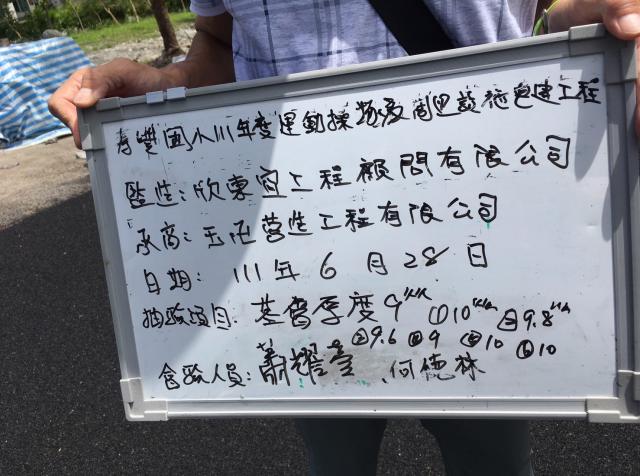 壽豐國小111年度運動操場及周邊設施興建工程
監造:欣東宜工程顧問有限公司
承商:玉卍營造工程有限公司
日期: 111年 6 月 28 日
抽驗項目: 基層厚度9㎝ ①10㎝ ②9.8㎝
③9.6 ④9 ⑤10 ⑥10
會驗人員: 蕭耀 、何德林